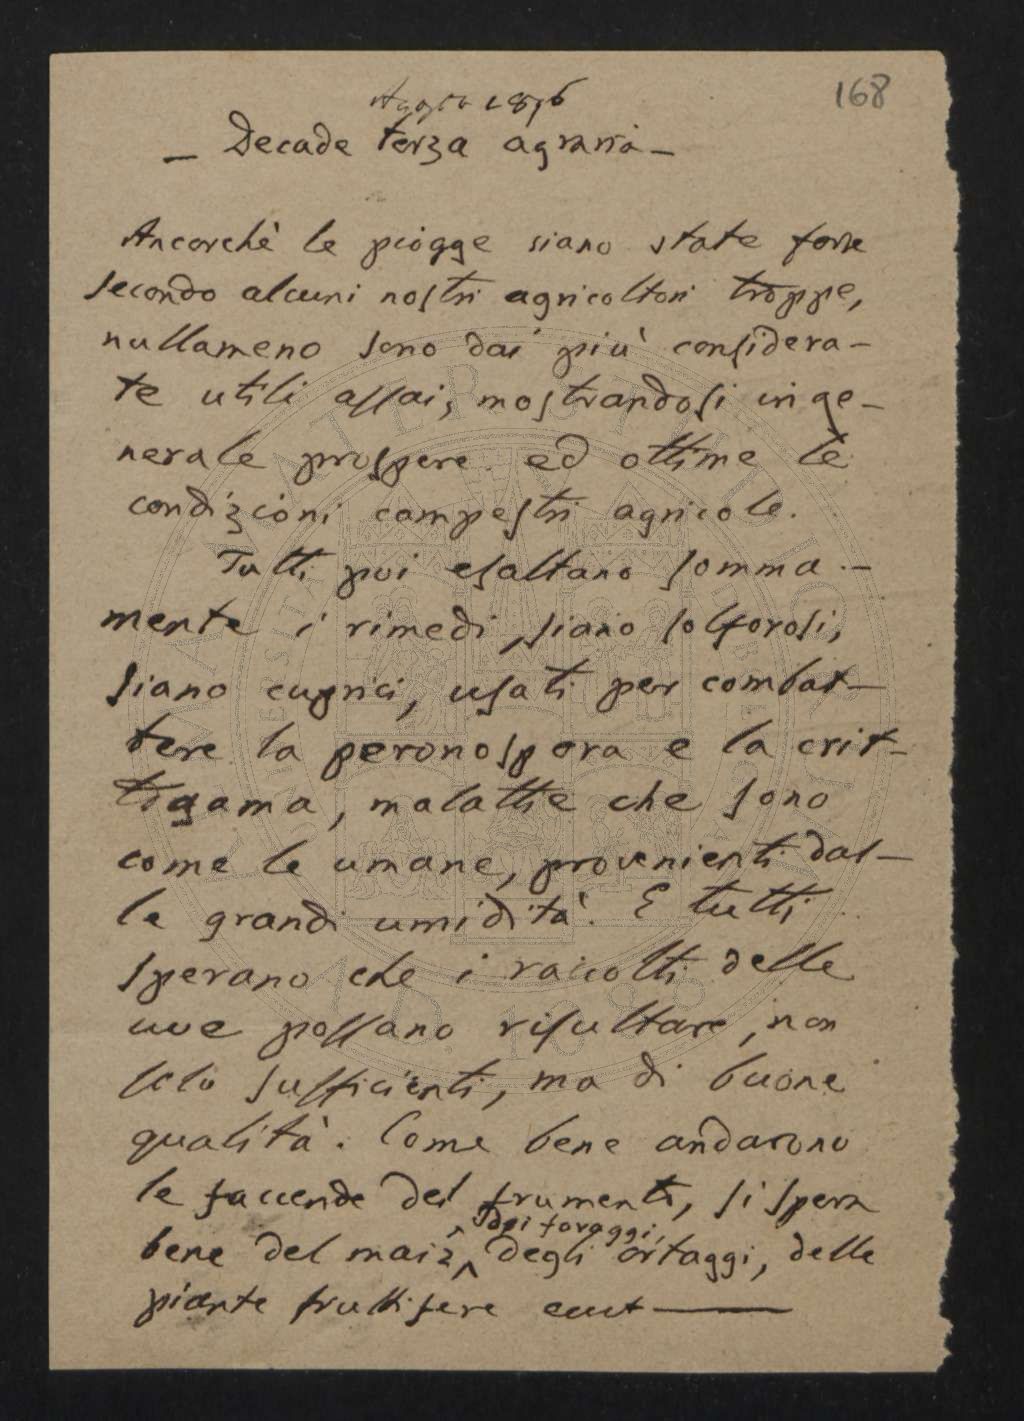 168
Agosto 1896
— Decade terza agraria —
Ancorchè le piogge siano state forse
secondo alcuni nostri agricoltori troppe,
nullameno sono dai più considera-
te utili assai, mostrandosi in ge-
nerale prospere ed ottime le
condizioni campestri agricole.
Tutti poi esaltano somma-
mente i rimedi, siano solforosi,
siano cuprici, usati per combat-
tere la peronospora e la crit-
togama, malattie che sono
come le umane, provenienti dal-
le grandi umidità. E tutti
sperano che i raccolti delle
uve possano risultare, non
solo sufficienti, ma di buone
qualità. Come bene andarono
le faccende del frumento, si spera
dei foraggi,
bene del maiz degli ortaggi, delle
piante fruttifere
ALMA MATER STUDIORUM
A.D. 1088